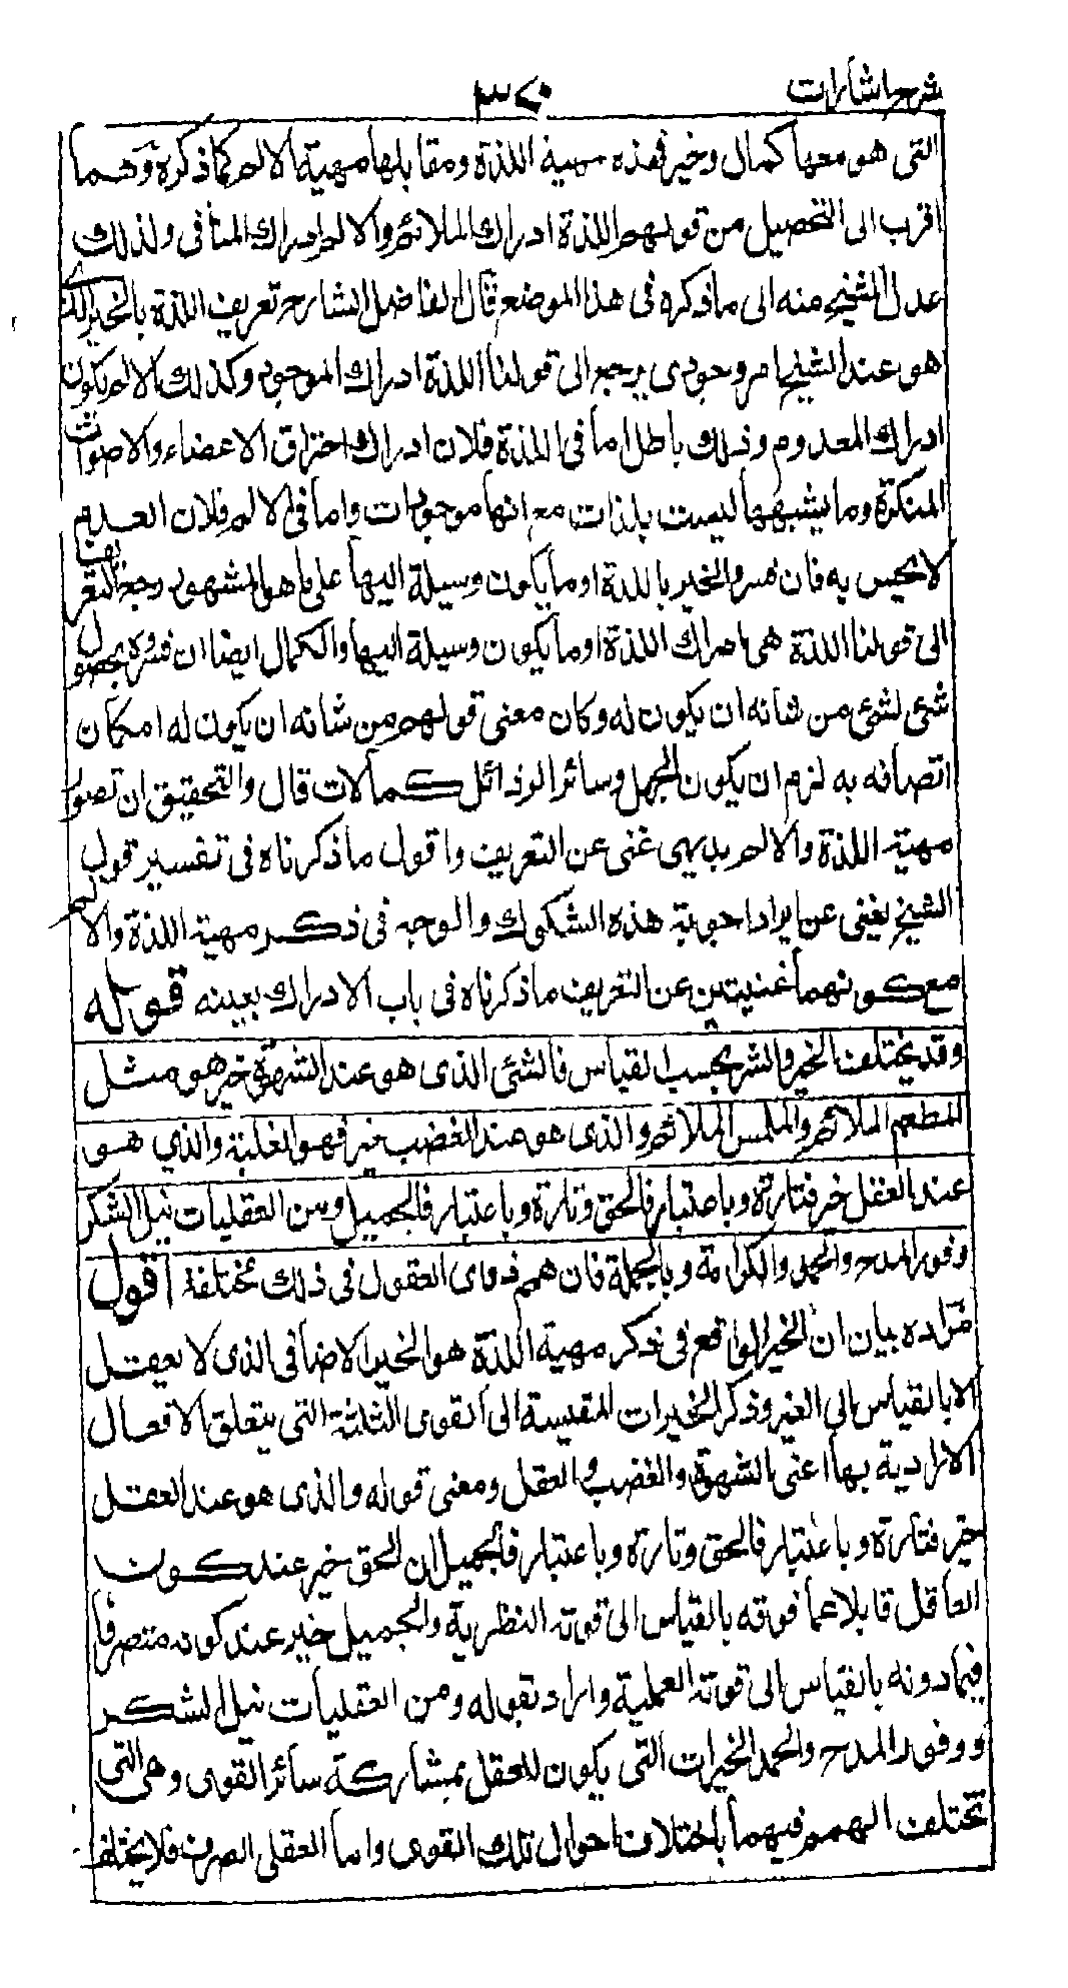 شرح اشارات
٣٢٠
التى هو معها كمال وخير فهذه مهية اللذة ومقابلها مهية الالم كما ذكره وهما
اقرب الى التحصيل من قولهم اللذة ادراك الملائم والالم ادراك المنافى ولذلك
عدل الشيخ منه الى ما ذكره فى هذا الموضع قال الفاضل الشارح تعريف اللذة بالخير الذى
هو عند الشيخ امر وجودى يرجع الى قولنا اللذة ادراك الموجود وكذلك الالم يكون
ادراك المعدوم وذلك باطل اما فى اللذة فلان ادراك احتراق الاعضاء والاصوات
المنكرة وما يشبهها ليست بلذات مع انها موجودات واما فى الالم فلان العدم
لا يحس به فان فسر الخير باللذة او ما يكون وسيلة اليها على ما هو المشهور رجع التعريف
الى قولنا اللذة هى ادراك اللذة او ما يكون وسيلة اليها والكمال ايضا ان فسره بحصول
شئ لشئ من شانه ان يكون له وكان معنى قولهم من شانه ان يكون له امكان
اتصافه به لزم ان يكون الجهل وسائر الرذائل كمالات قال والتحقيق ان تصور
مهية اللذة والالم بديهى غنى عن التعريف واقول ما ذكرناه فى تفسير قول
الشيخ يغنى عن ايراد اجوبة هذه الشكوك والوجه فى ذكر مهية اللذة والالم
مع كونهما غنيتين عن التعريف ما ذكرناه فى باب الادراك بعينه قوله
وقد يختلف الخير والشر بحسب القياس فالشئ الذى هو عند الشهوة خير هو مثل
المطعم الملائم والملمس الملائم والذى هو عند الغضب خير فهو الغلبة والذي هو
عند العقل خير فتارة وباعتبار فالحق وتارة وباعتبار فالجميل ومن العقليات نيل الشكر
ووفور المدح والحمد والكرامة وبالجملة فان همم ذوى العقول فى ذلك مختلفة اقول
مراده بيان ان الخير الواقع فى ذكر مهية اللذة هو الخير الاضافى الذى لا يعقل
الا بالقياس الى الغير وذكر الخيرات المقيسة الى القوى الثلثة التى يتعلق الافعال
الارادية بها اعنى الشهوة والغضب والعقل ومعنى قوله والذى هو عند العقل
خير فتارة وباعتبار فالحق وتارة وباعتبار فالجميل ان الحق خير عند كون
العاقل قابلا عما فوقه بالقياس الى قوته النظرية والجميل خير عند كونه متصرفا
فيما دونه بالقياس الى قوته العملية واراد بقوله ومن العقليات نيل الشكر
ووفور المدح والحمد الخيرات التى يكون للعقل بمشاركة سائر القوى وهى التى
تختلف الهمم فيهما باختلاف احوال تلك القوى واما العقلى الصرف فلا يختلف